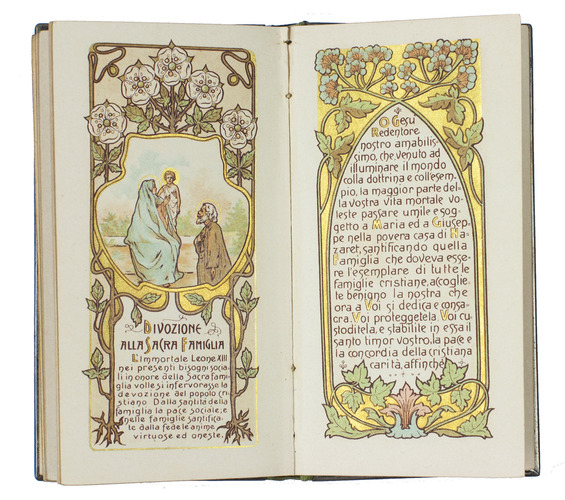 DIVOZIONE
ALLA SACRA FAMIGLIA
L'Immortale Leone XIII
nei presenti bisogni socia-
li in onore della Sacra fami-
glia volle si infervorasse la
devozione del popolo cri-
stiano. Dalla santità della
famiglia la pace sociale; e
nelle famiglie santifica-
te dalla fede le anime
virtuose ed oneste.
O Gesu
Redentore
nostro amabilis-
simo, che, venuto ad
illuminare il mondo
colla dottrina e coll'esem-
pio, la maggior parte del-
la vostra vita mortale vo-
leste passare umile e sog-
getto a Maria ed a Giusep-
pe nella povera casa di Na-
zaret, santificando quella
Famiglia che doveva esse-
re l'esemplare di tutte le
famiglie cristiane, accoglie-
te benigno la nostra che
ora a Voi si dedica e consa-
cra. Voi proteggetela Voi cu-
stoditela, e stabilite in essa il
santo timor vostro, la pace e
la concordia della cristiana
carità, affinchè